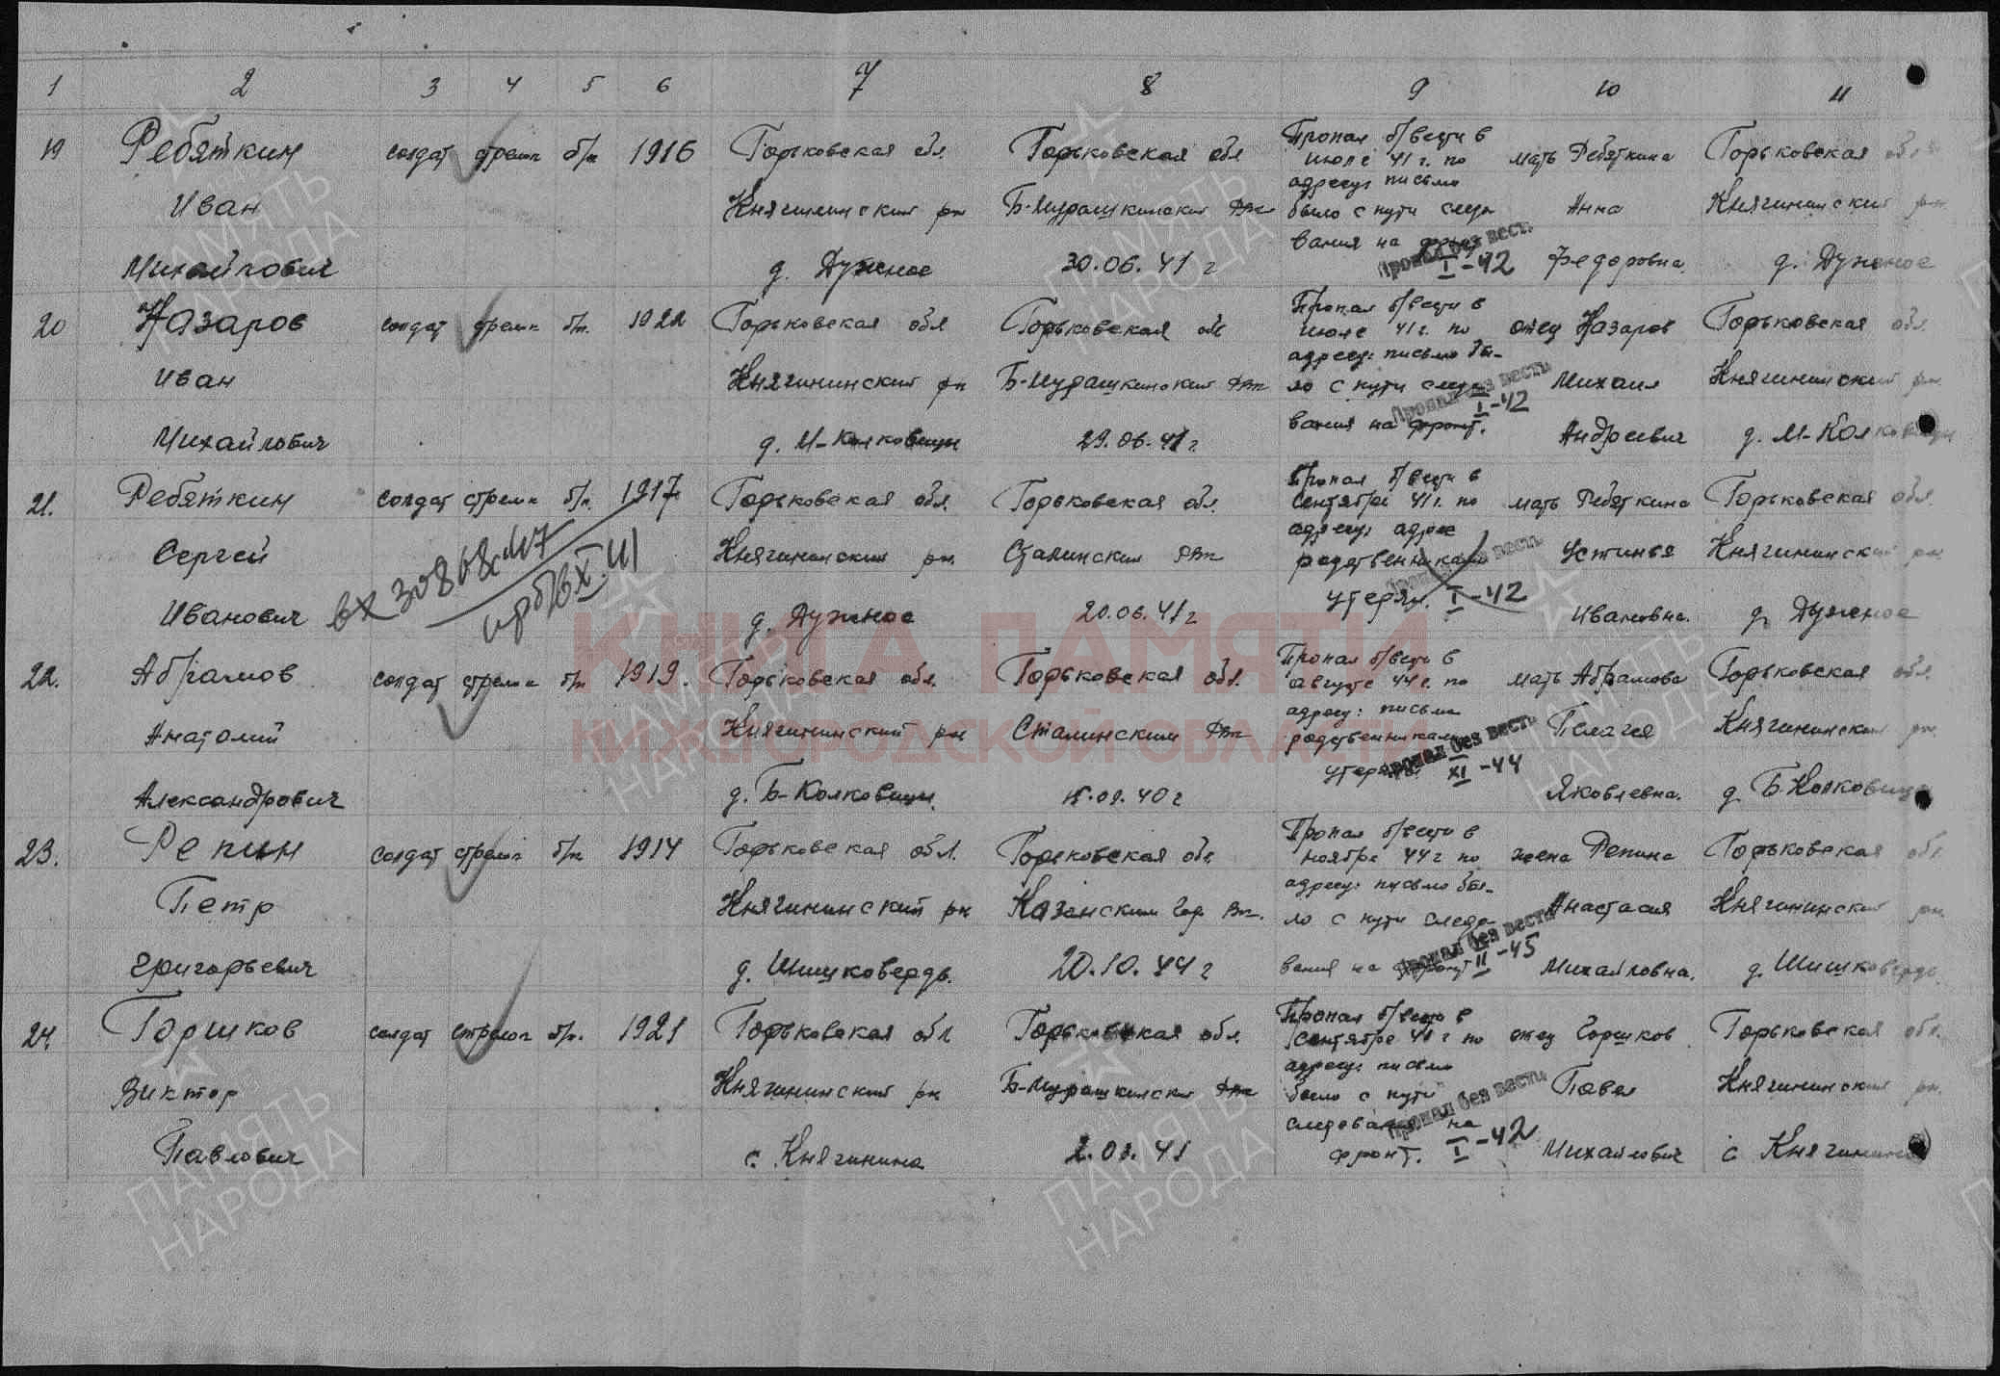 1 2 3 4 5 6 7 8 9 10 11
19 Ребяткин солдат стрелк б/п 1916 Горьковская обл Горьковская обл Пропал б/вести в июле 41 г. по мать Ребяткина Горьковская обл
Иван Княгининский рн Б-Мурашкинским РВк адресу: письмо было с пути следо Анна Княгининский рн
Михайлович д. Дужное 30.06.41 г вания на фронт Федоровна. д. Дужное
Пропал без вести
I-42
20 Назаров солдат стрелк б/п. 1922 Горьковская обл Горьковская обл Пропал б/вести в июле 41 г. по отец Назаров Горьковская обл.
Иван Княгининский рн Б-Мурашкинским РВк адресу: письмо бы- ло с пути следо Михаил Княгининский рн
Михайлович д. М-Колковицы 29.06.41 г. вания на фронт. Андреевич д. М-Колковицы
Пропал без вести
I-42
21. Ребяткин солдат стрелк б/п. 1917 Горьковская обл. Горьковская обл. Пропал б/вести в сентябре 41 г. по мать Ребяткина Горьковская обл.
Сергей Княгининский рн. Сталинским РВк адресу: адрес родственниками Устинья Княгининский рн
Иванович д. Дужное 20.06.41 г утерян. Ивановна. д. Дужное
вх 30868с-47
Пропал без вести
I-42
22. Абрамов солдат стрелк б/п 1919. Горьковская обл. Горьковская обл. Пропал б/вести в августе 44 г. по мать Абрамова Горьковская обл.
Анатолий Княгининский рн Сталинским РВк адресу: письма родственниками Пелагея Княгининский рн.
Александрович д. Б-Колковицы. .09.40 г утеряны Яковлевна. д. Б-Колковицы
Пропал без вести
XI-44
23. Репин солдат стрелок б/п 1914 Горьковская обл. Горьковская обл Пропал б/вести в ноябре 44 г по жена Репина Горьковская обл.
Петр Княгининский рн Казанским Гор Вк. адресу: письмо бы- ло с пути следо Анастасия Княгининский рн
Григорьевич д. Шишковердь. 20.10.44 г вания на фронт Михайловна. д. Шишковердь.
Пропал без вести
II-45
24. Горшков солдат стрелок б/п. 1921 Горьковская обл Горьковская обл. Пропал б/вести в сентябре 41 г по отец Горшков Горьковская обл.
Виктор Княгининский рн Б-Мурашкински РВк адресу: письмо было с пути Павел Княгининский рн.
Павлович с. Княгинина 2.09.41 следования на фронт. Михайлович с Княгинина
Пропал без вести
I-42
КНИГА ПАМЯТИ
НИЖЕГОРОДСКОЙ ОБЛАСТИ
ПАМЯТЬ
НАРОДА